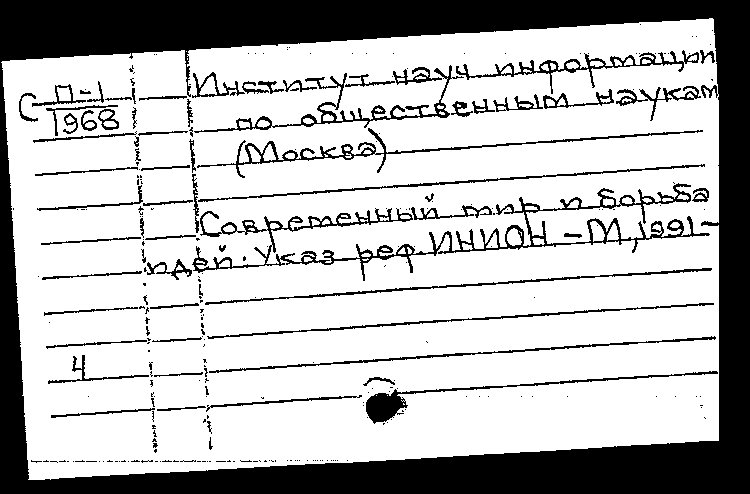 С П-1
1968
Институт науч информации
по общественным наукам
(Москва).
Современный мир и борьба
идей. Указ реф. ИНИОН - М, 1991-
4